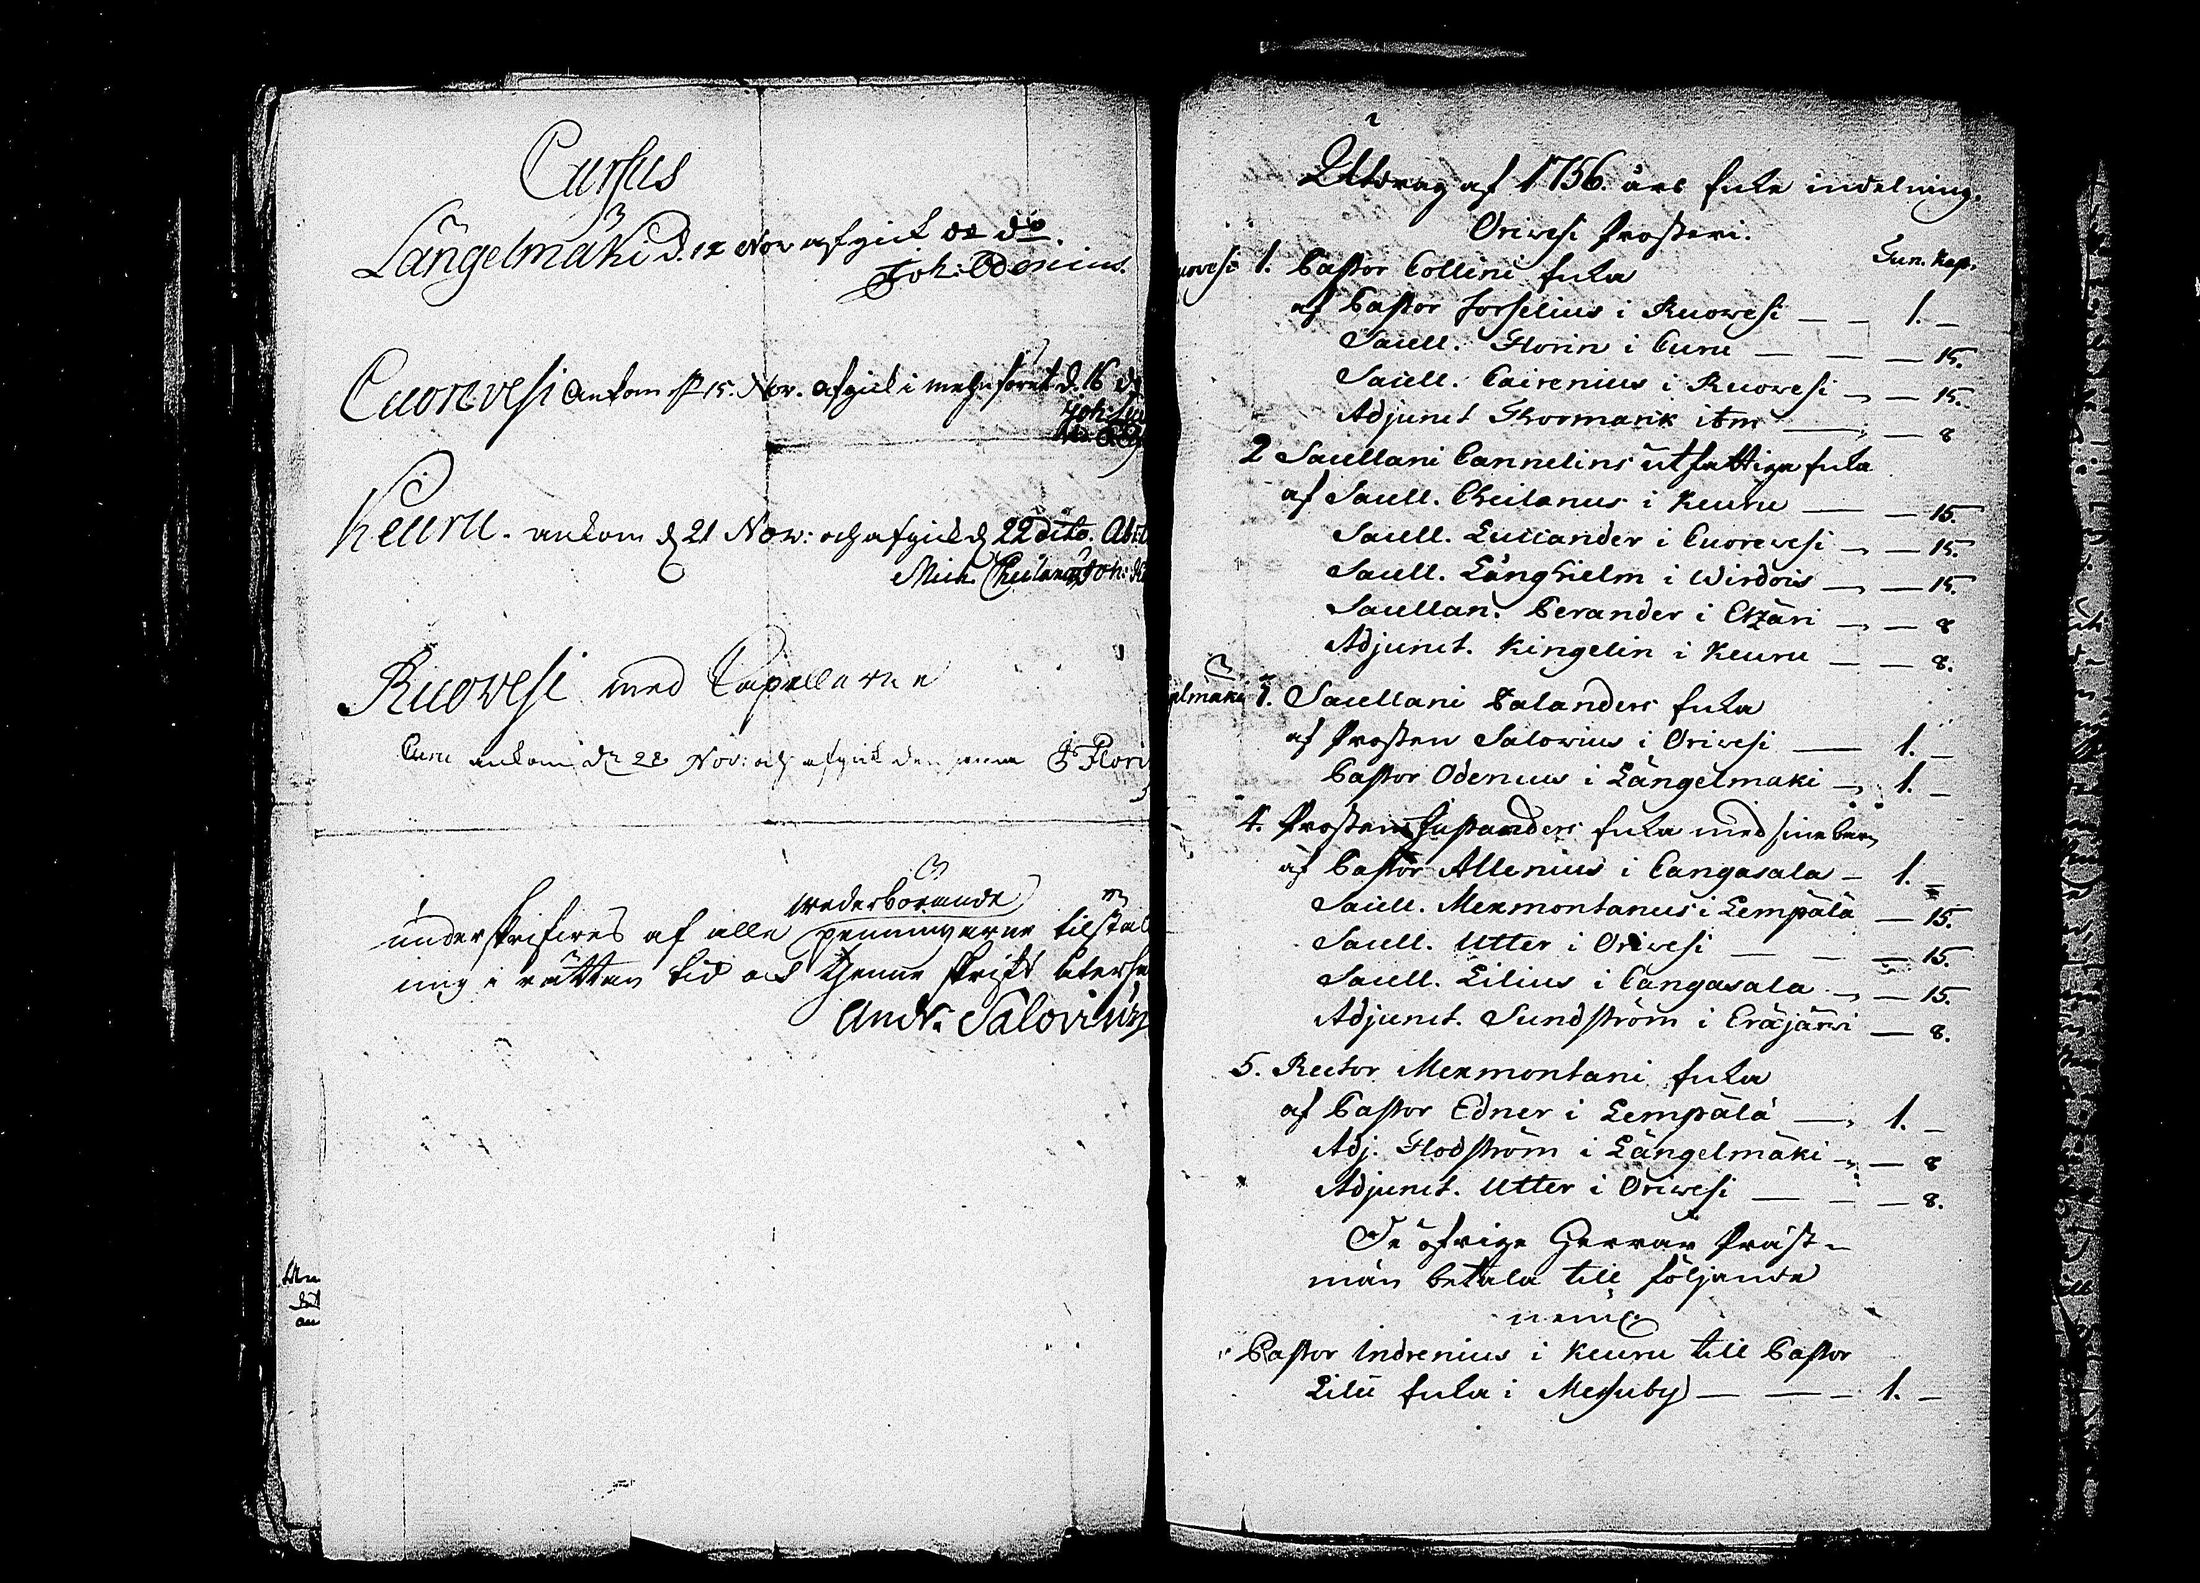 Cursus
Längelmäki d. 12 Nov afgick de do.
Joh: Odenius.
Cuorevesi ankom d 15. Nov. afgick i med. foret d. 16 d
Keuru. ankom d 21 Nov: och afgick d 22 dito.
Mich. Cheilanus Joh:
Ruowesi med Capellerne
Curu ankom dn 28 Nov: och afgick den samma Js Flori
wederbörande
underskrifves af alle penningarne tilstäl
ning i rättan tid och denne skrift återse
Andr. Salovius
Utdrag af 1756. års Enke indelning.
Oriwesi Prosteri.
Cun. Kop.
uovesi 1. Pastor Collini Enka
af Pastor Forselius i Ruowesi — — 1. —
Sacell. Florin i Curu — — — 15.
Sacell. Cairenius i Ruowesi — — 15.
Adjunct Thormarik itm — — 8
2 Sacellani Cannelins utfattiga Enka
af Sacell. Cheilanus i Keuru — — 15.
Sacell. Lucander i Cuorewesi — — 15.
Sacell. Långhielm i Wirdois — — 15.
Sacellan. Perander i Etzäri — — 8
Adjunct. Kingelin i Keuru — — 8.
elmäki 3. Sacellani Palanders Enka
af Prosten Salovius i Oriwesi — 1. —
Pastor Odenius i Längelmäki — 1. —
4. Prosten Enka med sine barn
af Pastor Allenius i Cangasala — 1. —
Sacell. Mexmontanus i Lempälä — 15.
Sacell. Utter i Oriwesi — — — 15.
Sacell. Lilius i Cangasala — — 15.
Adjunct. Sundström i Eräjärwi — 8.
5. Rector Mexmontani Enka
af Pastor Edner i Lempälä — 1. —
Adj. Flodström i Längelmäki — — 8
Adjunct. Utter i Oriwesi — — — 8.
De öfrige Herrar Präst-
män betala till följande
neml.
Pastor Indrenius i Keuru till Pastor
Lilii Enka i Messuby — — — 1. —